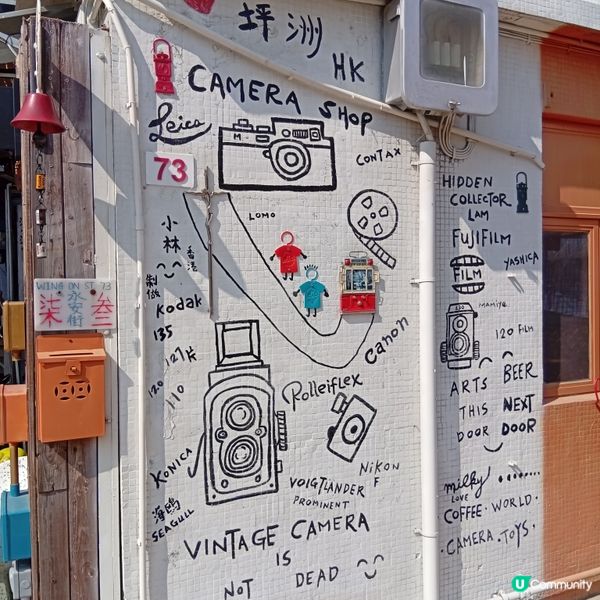 坪洲
HK
CAMERA SHOP
Leica
M
73
CONTAX
LOMO
小林
香港
製做
Kodak
135
127片
120
110
WING ON ST 73
永安街
柒 叁
Canon
Rolleiflex
KONICA
VOIGTLANDER
PROMINENT
NIKON
F
海鷗
SEAGULL
VINTAGE CAMERA
IS
NOT DEAD
HIDDEN
COLLECTOR
LAM
FUJIFILM
YASHICA
FILM
MAMIYA
120 FILM
ARTS BEER
THIS NEXT
DOOR DOOR
milky
LOVE
COFFEE·WORLD·
·CAMERA·TOYS·
U Community